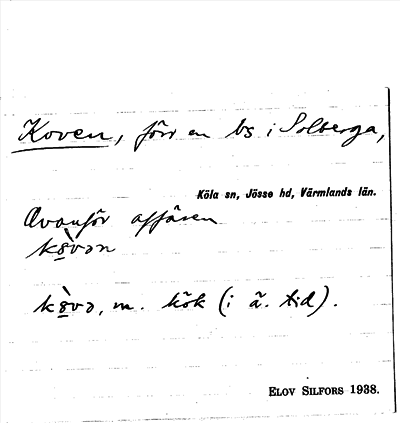 Koven, förr en bs i Solberga,
Köla sn, Jösse hd, Värmlands län.
Ovanför affären
kòvən
kòvə, m. kök (i ä. tid).
ELOV SILFORS 1938.